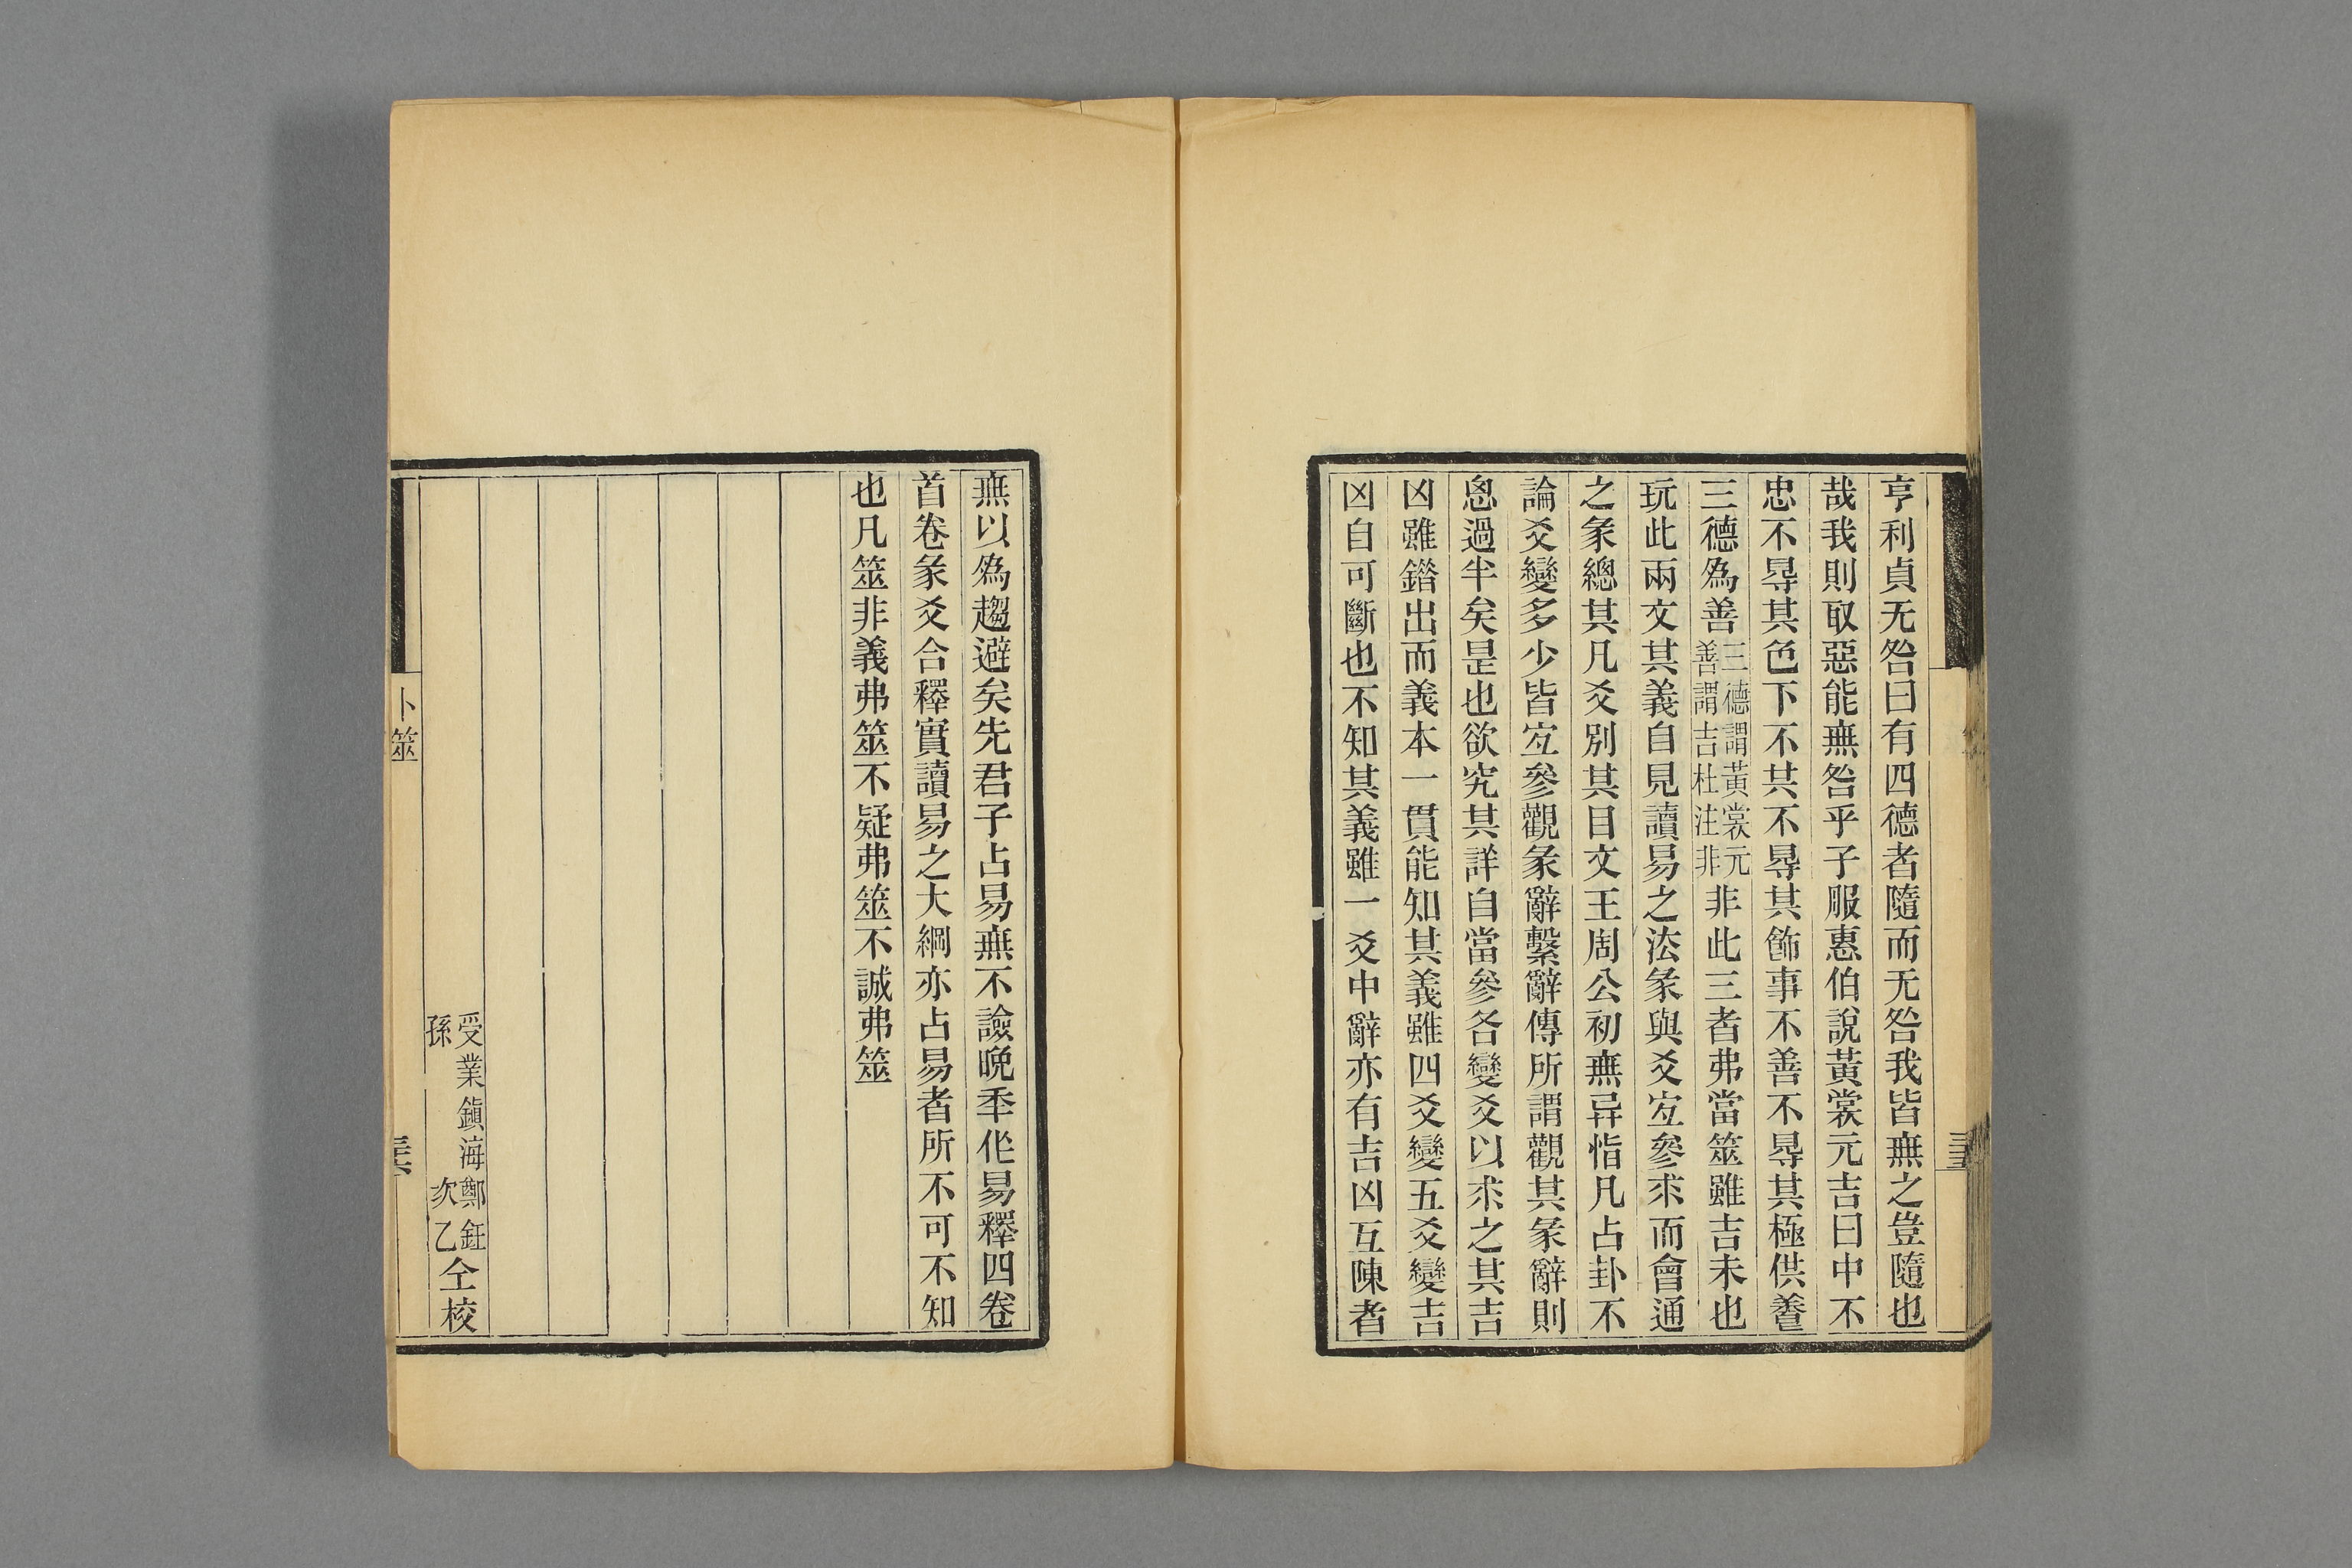 亨利貞无咎曰有四德者隨而无咎我皆無之豈隨也
哉我則取惡能無咎乎子服惠伯說黃裳元吉曰中不
忠不㝵其色下不共不㝵其飾事不善不㝵其極供養
三德爲善三德謂黃裳元善謂吉杜注非非此三者弗當筮雖吉未也
玩此兩文其義自見讀易之法彖與爻宜參求而會通
之彖總其凡爻別其目文王周公初無异恉凡占卦不
論爻變多少皆宜參觀彖辭繫辭傳所謂觀其彖辭則
恖過半矣是也欲究其詳自當參各變爻以求之其吉
凶雖錯出而義本一貫能知其義雖四爻變五爻變吉
凶自可斷也不知其義雖一爻中辭亦有吉凶互陳者
卜筮
無以爲趨避矣先君子占易無不譣晚秊作易釋四卷
首卷彖爻合釋實讀易之大綱亦占易者所不可不知
也凡筮非義弗筮不疑弗筮不誠弗筮
受業鎮海鄭鈺
孫次乙
仝校